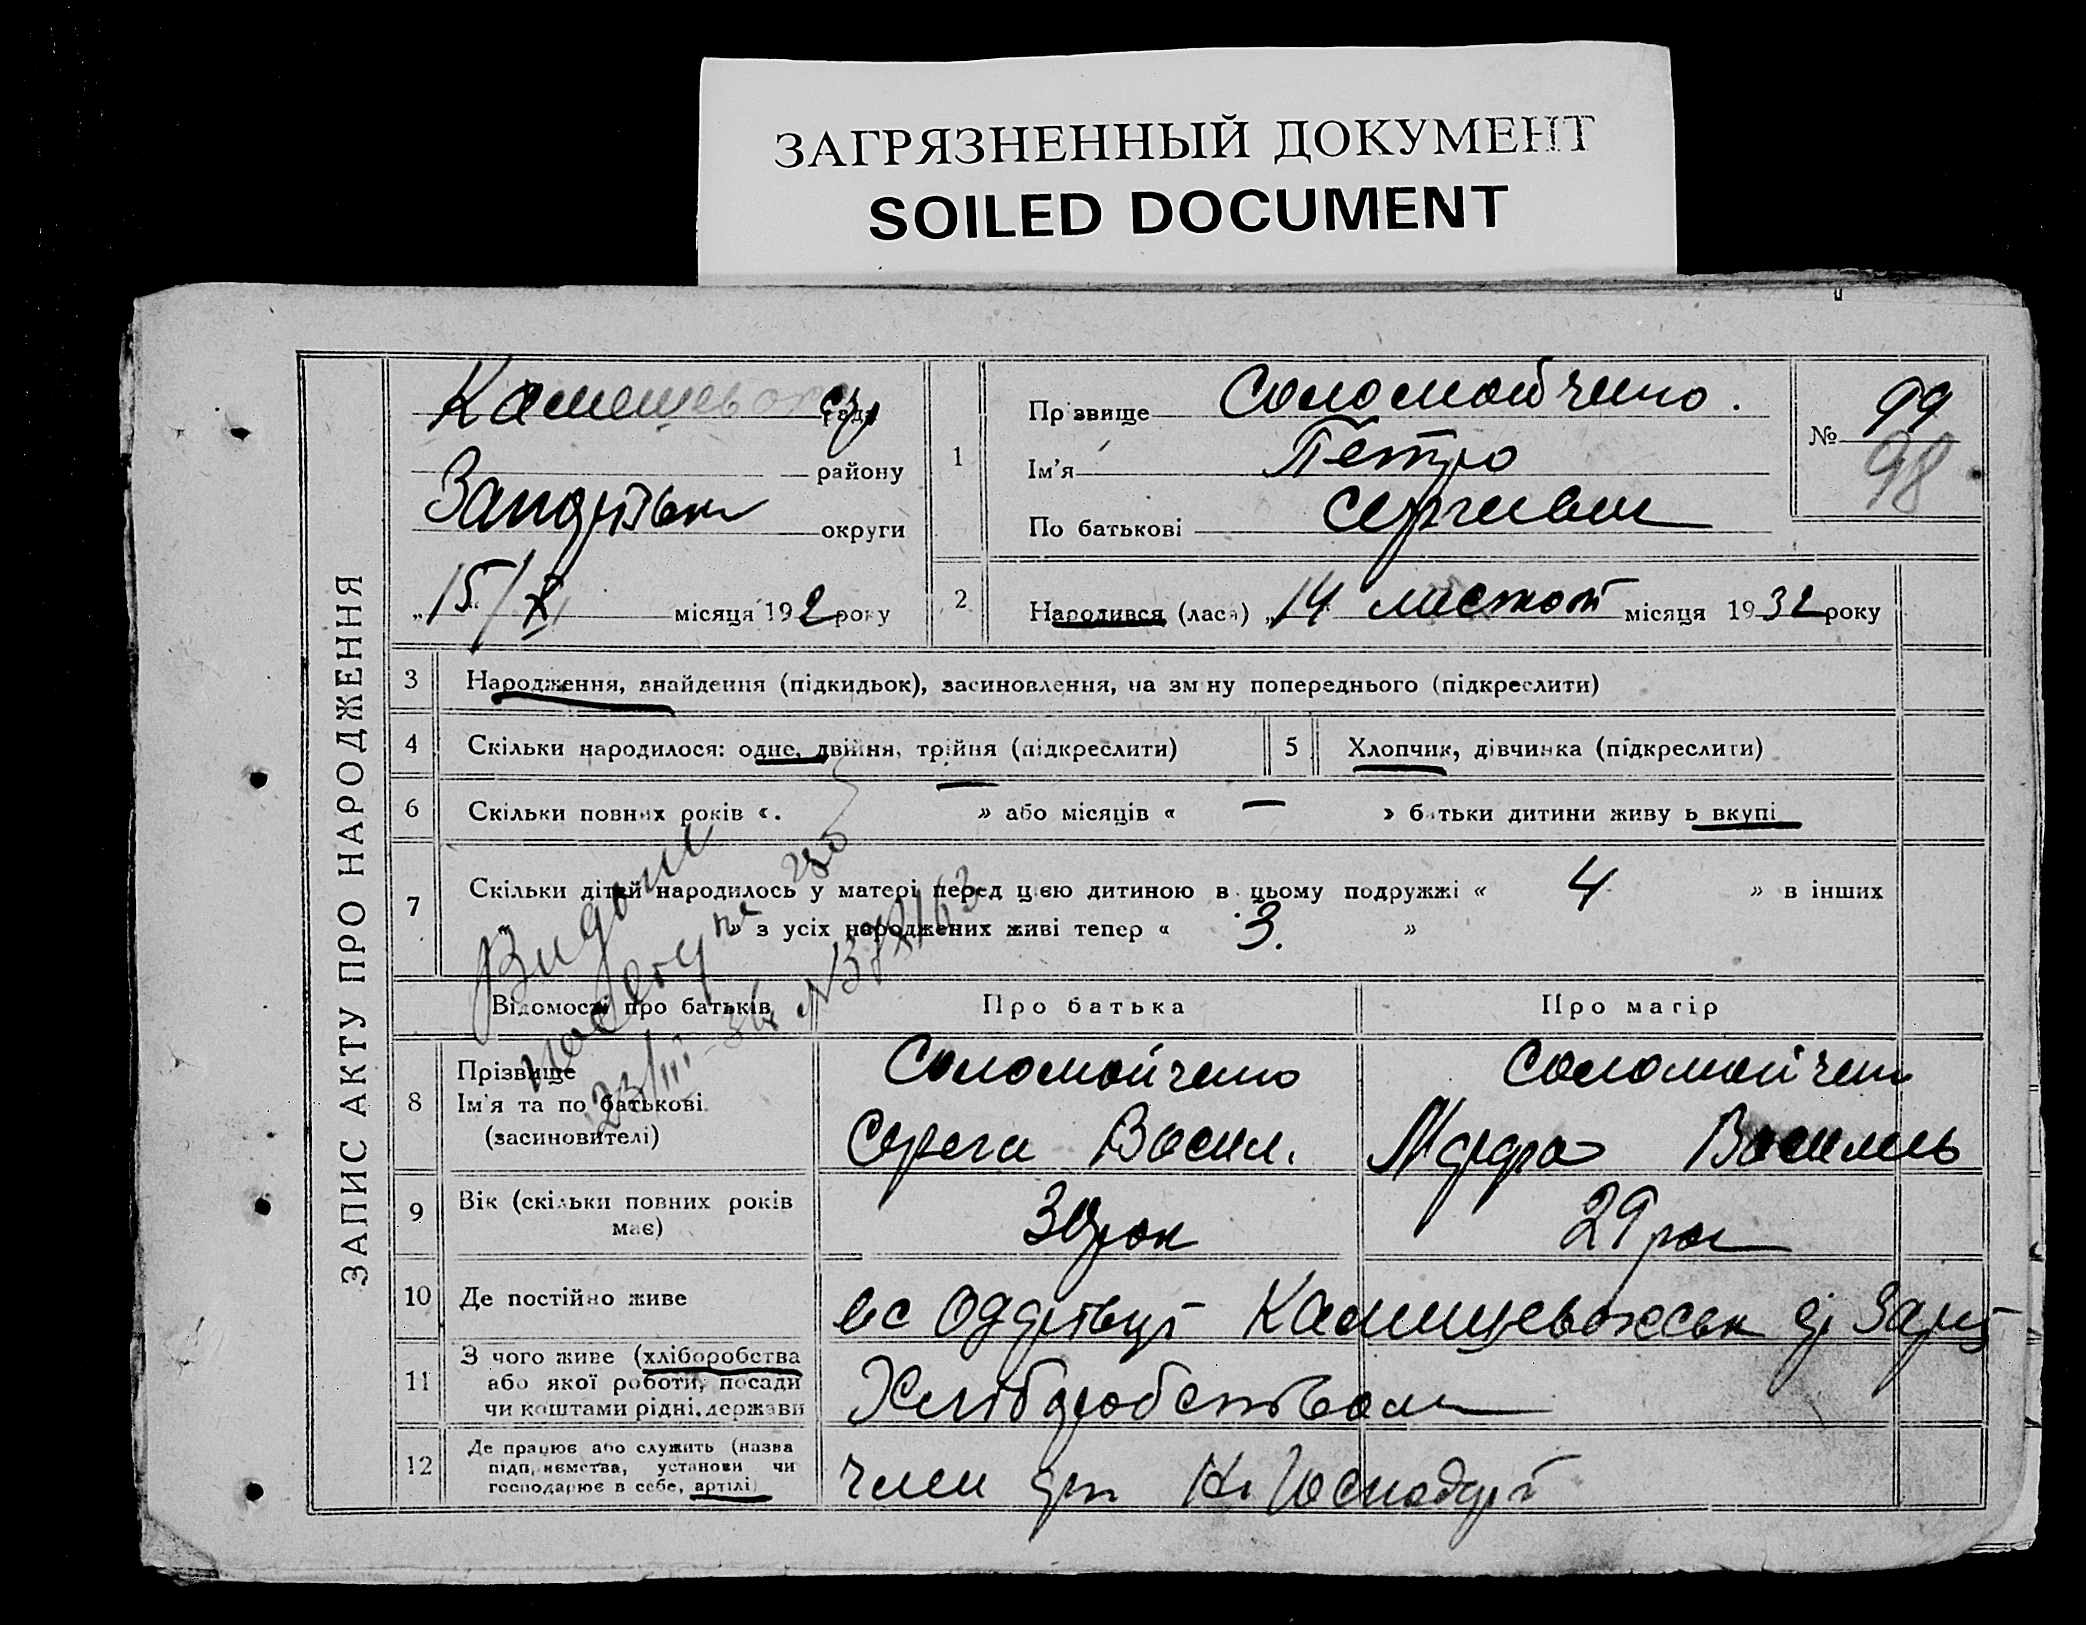 ЗАГРЯЗНЕННЫЙ ДОКУМЕНТ
SOILED DOCUMENT
ЗАПИС АКТУ ПРО НАРОДЖЕННЯ
району
округи
15/XI місяця 192 року
1
Прізвище Соломойченко.
Ім'я Петро
По батькові Сергиевич
№ 99
98
2 Народився (лася) „14 листопат місяця 1932 року
3 Народження, знайдення (підкидьок), засиновлення, на зміну попереднього (підкреслити)
4 Скільки народилося: одне, двійня, трійня (підкреслити)
5 Хлопчик, дівчинка (підкреслити)
6 Скільки повних років «. — » або місяців « — » батьки дитини живуть вкупі
7 Скільки дітей народилось у матері перед цією дитиною в цьому подружжі « 4 » в інших
» з усіх народжених живі тепер « 3. »
Видано
Відомості про батьків Про батька Про матір
8 Прізвище
Ім'я та по батькові
(засиновителі)
Соломойченко
Сергей Васил.
Соломойчен
Васильев
9 Вік (скільки повних років має)
30 рок
29 рок
10 Де постійно живе
11 З чого живе (хліборобства
або якої роботи, посади
чи коштами рідні, держави
Хлібборобством
12 Де працює або служить (назва
підприємства, установи чи
господарює в себе, артілі)
член